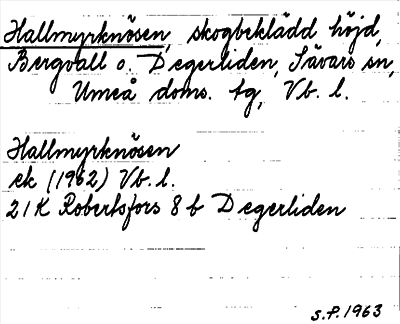 Hallmyrknösen, skogbeklädd höjd,
Bergvall o. Degerliden, Sävars sn,
Umeå doms. tg, Vb. l.
Hallmyrknösen
ek (1962) Vb. l.
21K Robertsfors 8 b Degerliden
S.P. 1963